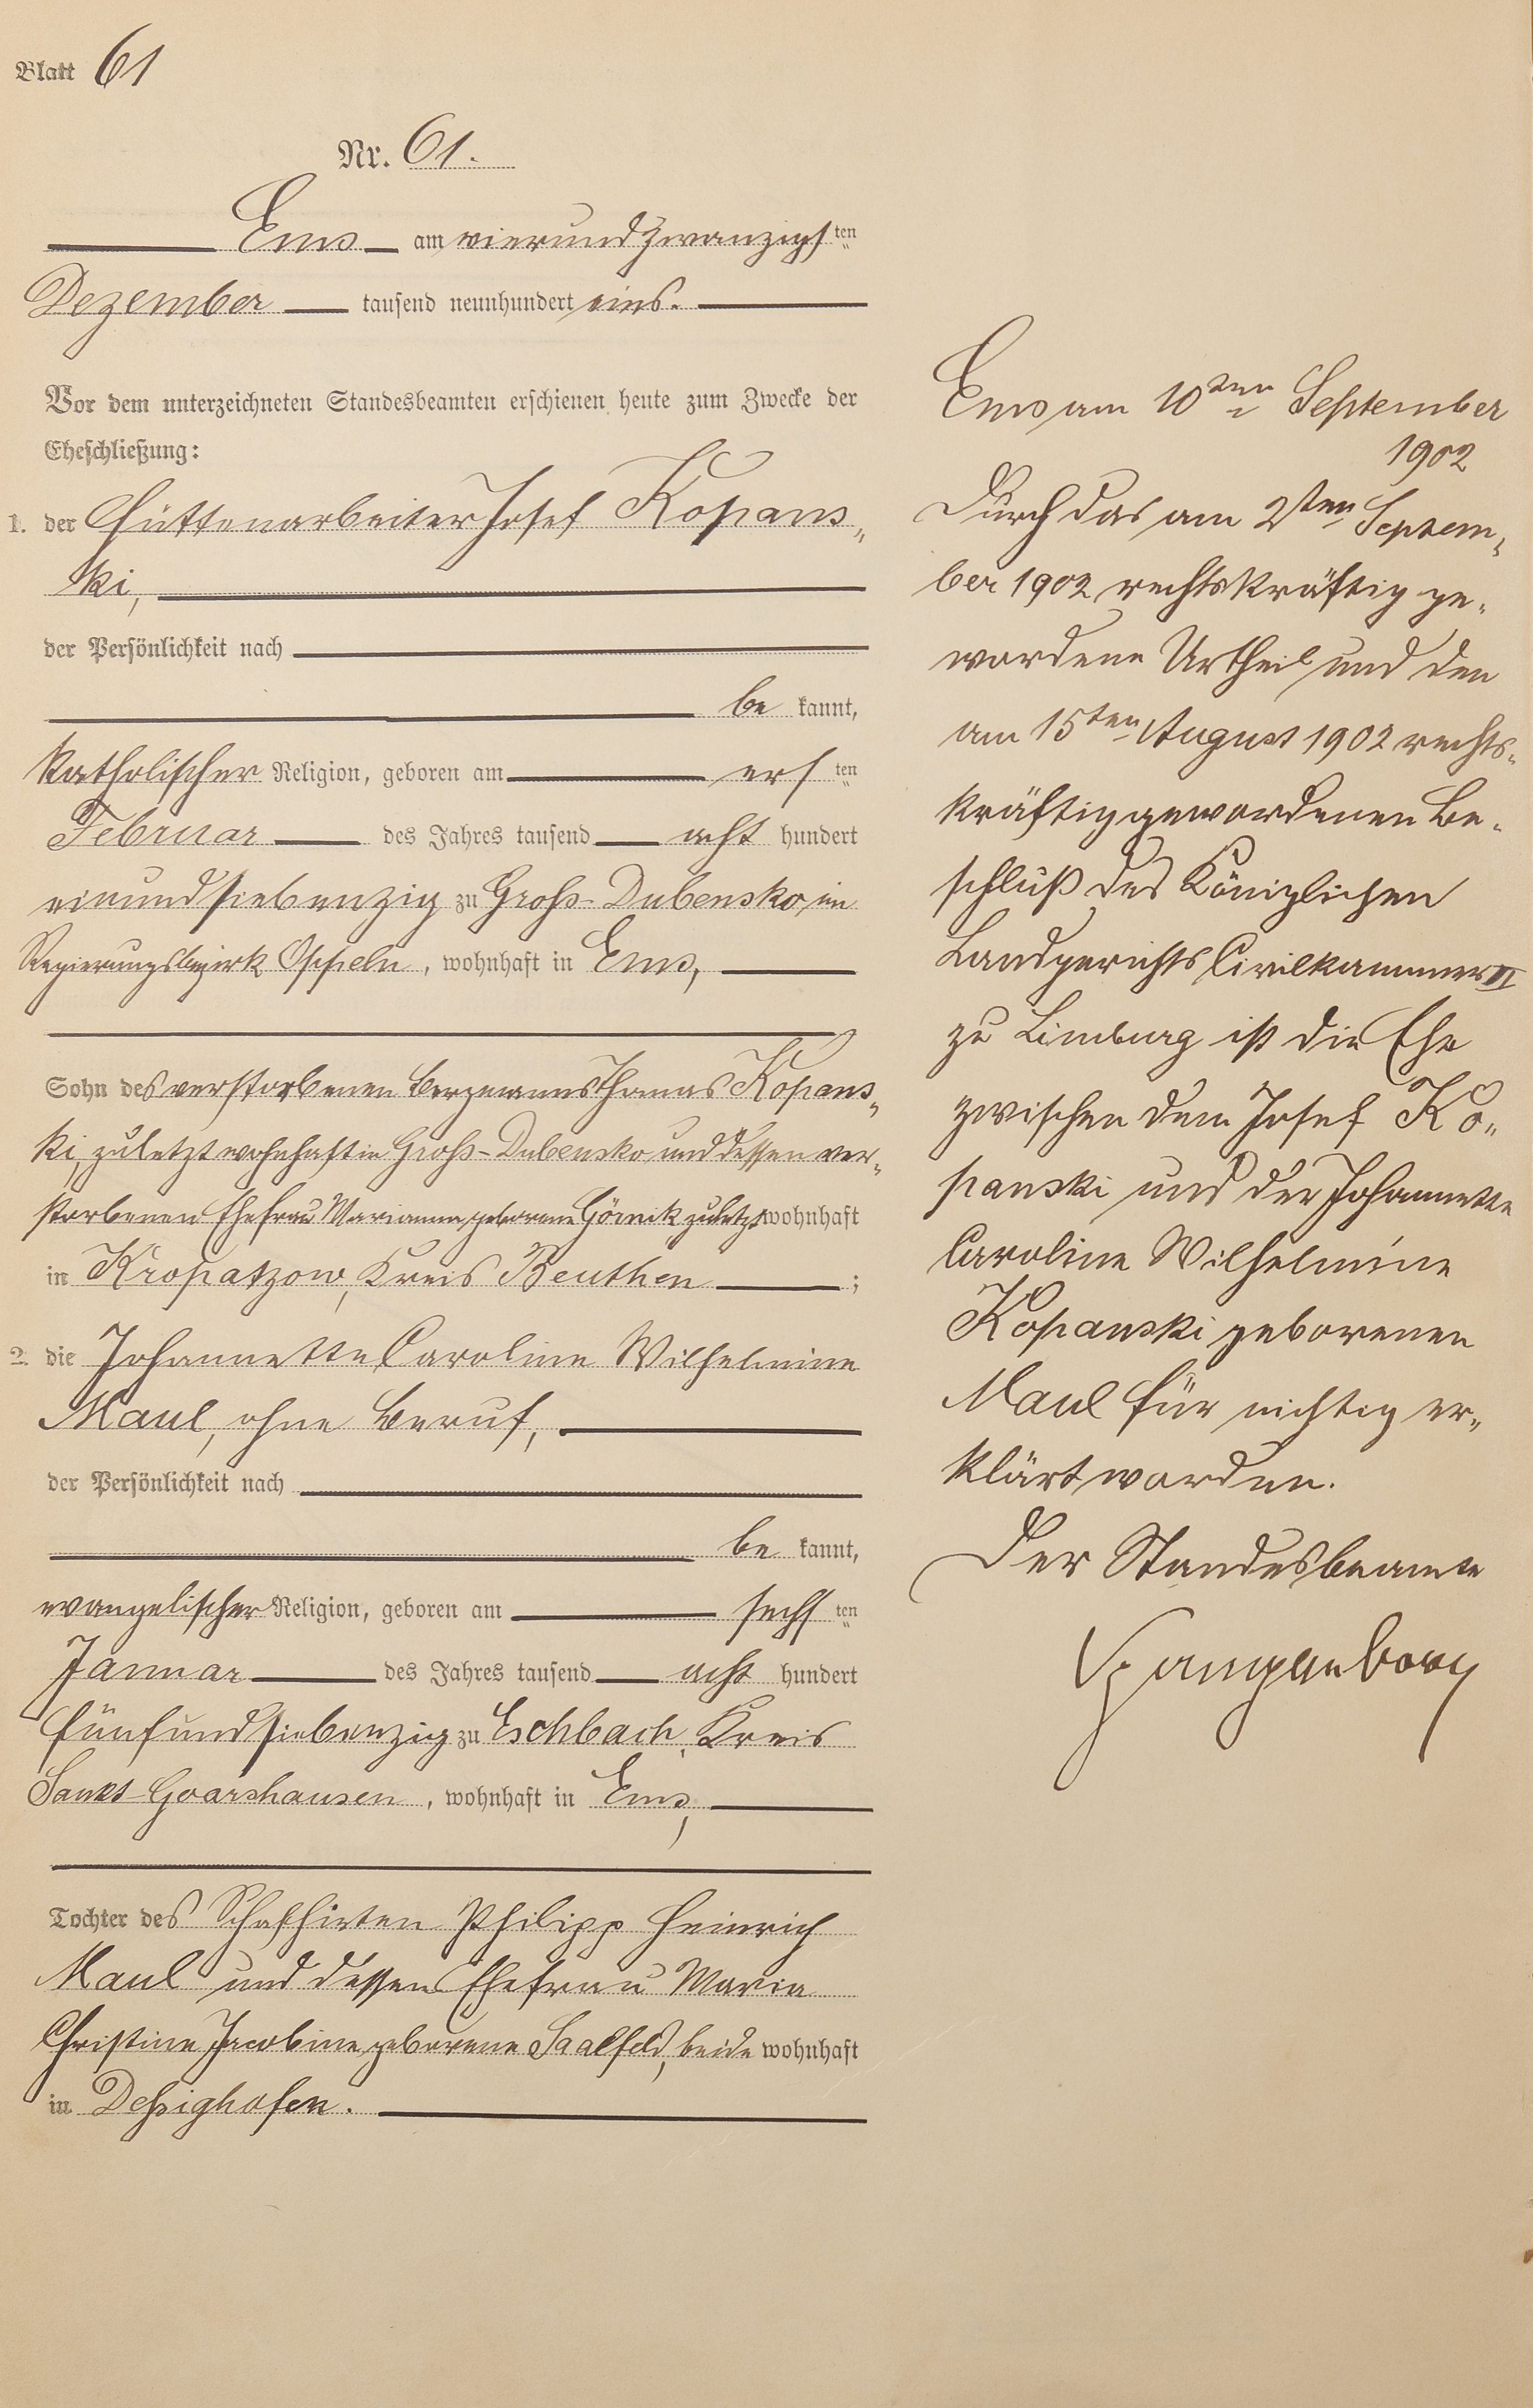 Blatt 61
Nr. 61.
Ems am vierundzwanzigsten
Dezember tausend neunhundert eins.
Vor dem unterzeichneten Standesbeamten erschienen heute zum Zwecke der
Eheschließung:
1. der Hüttenarbeiter Josef Kopans„
ki,
der Persönlichkeit nach
be kannt,
katholischer Religion, geboren am ersten
Februar des Jahres tausend acht hundert
einundsiebenzig zu Groß-Dubensko, im
Regierungsbezirk Oppeln, wohnhaft in Ems,
Sohn des verstorbenen Bergmanns Thomas Kopans„
ki, zuletzt wohnhaft in Groß-Dubensko und dessen ver„
storbenen Ehefrau Marianna, geborene Görnik zuletzt wohnhaft
in Kropatzow, Kreis Beuthen;
2. die Johannette Caroline Wilhelmine
Maul, ohne Beruf,
der Persönlichkeit nach
be kannt,
evangelischer Religion, geboren am sechsten
Januar des Jahres tausend acht hundert
fünfundsiebenzig zu Eschbach, Kreis
Sankt Goarshausen, wohnhaft in Ems,
Tochter des Schafhirten Philipp Heinrich
Maul und dessen Ehefrau Maria
Christine Jacobine geborene Saalfeld, beide wohnhaft
in Deßighofen.
Ems am 10ten September
1902
Durch das am 2ten Septem„
ber 1902 rechtskräftig ge„
wordene Urtheil und den
am 15ten August 1902 rechts„
kräftig gewordenen Be„
schluß des Königlichen
Landgerichts Civilkammer II
zu Limburg ist die Ehe
zwischen dem Josef Ko„
panski und der Johannette
Caroline Wilhelmine
Kopanski geborenen
Maul für nichtig er„
klärt worden.
Der Standesbeamte
Spangenberg